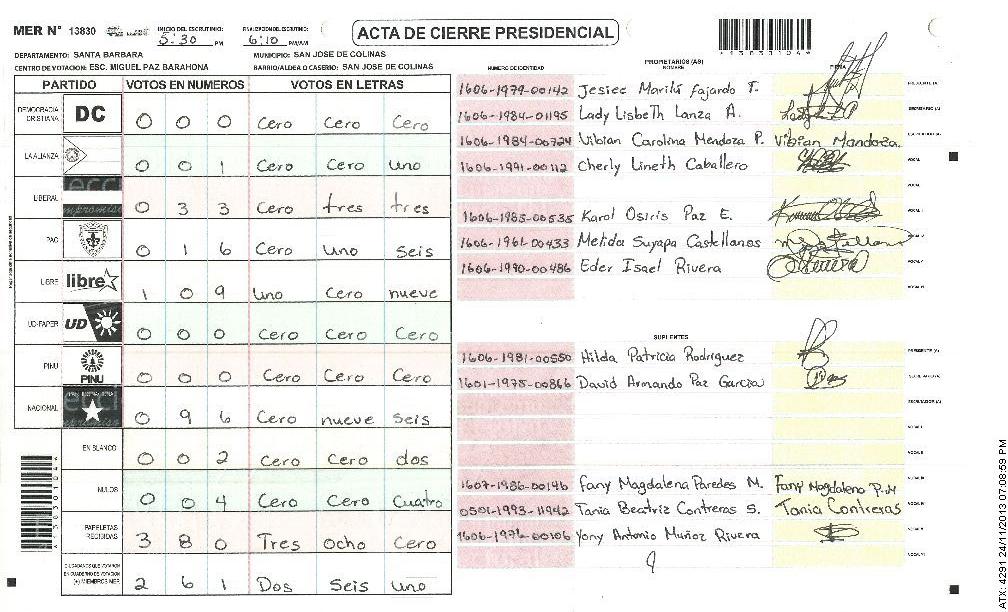 MER N° 13830 INICIO DEL ESCRUTINIO: 5:30 PM FINALIZACION DEL ESCRUTINIO: 6:10 PM/AM
ACTA DE CIERRE PRESIDENCIAL
DEPARTAMENTO: SANTA BARBARA MUNICIPIO: SAN JOSE DE COLINAS
CENTRO DE VOTACION: ESC. MIGUEL PAZ BARAHONA BARRIO/ALDEA O CASERIO: SAN JOSE DE COLINAS
PARTIDO VOTOS EN NUMEROS VOTOS EN LETRAS
DEMOCRACIA CRISTIANA DC 0 0 0 Cero Cero Cero
LA ALIANZA 0 0 1 Cero Cero uno
LIBERAL 0 3 3 Cero tres tres
PAC 0 1 6 Cero Uno seis
LIBRE libre 1 0 9 Uno Cero nueve
UD-FAPER UD 0 0 0 Cero Cero Cero
PINU PINU 0 0 0 Cero Cero Cero
NACIONAL 0 9 6 Cero nueve Seis
EN BLANCO 0 0 2 Cero Cero dos
NULOS 0 0 4 Cero Cero Cuatro
PAPELETAS RECIBIDAS 3 8 0 Tres ocho Cero
CIUDADANOS QUE VOTARON EN CUADERNO DE VOTACION (+) MIEMBROS MER 2 6 1 Dos Seis uno
PROPIETARIOS (AS)
NUMERO DE IDENTIDAD NOMBRE FIRMA
1606-1979-00142 Jesiee Marilú fajardo T. PRESIDENTE (A)
1606-1984-01195 Lady Lisbeth Lanza A. SECRETARIO (A)
1606-1984-00724 Vibian Carolina Mendoza P. Vibian Mendoza. ESCRUTADOR (A)
1606-1991-00112 Cherly Lineth Caballero VOCAL
VOCAL
1606-1985-00535 Karol Osiris Paz E. VOCAL
1606-1961-00433 Melida Suyapa Castellanos VOCAL
1606-1990-00486 Eder Isael Rivera VOCAL
SUPLENTES
1606-1981-00550 Hilda Patricia Rodriguez PRESIDENTE (A)
1601-1975-00866 David Armando Paz Garcia SECRETARIO (A)
ESCRUTADOR (A)
1607-1986-00146 Fany Magdalena Paredes M. Fany Magdalena P.M
0501-1993-11942 Tania Beatriz Contreras S. Tania Contreras
1606-1976-00106 Yony Antonio Muñoz Rivera
ATX: 4291 24/11/2013 07:08:59 PM